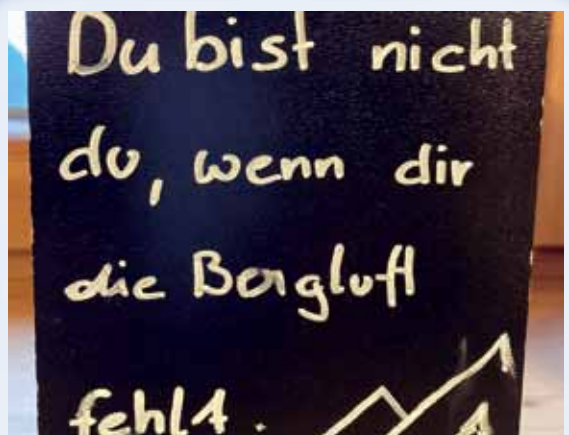 Du bist nicht
du, wenn dir
die Bergluft
fehlt.